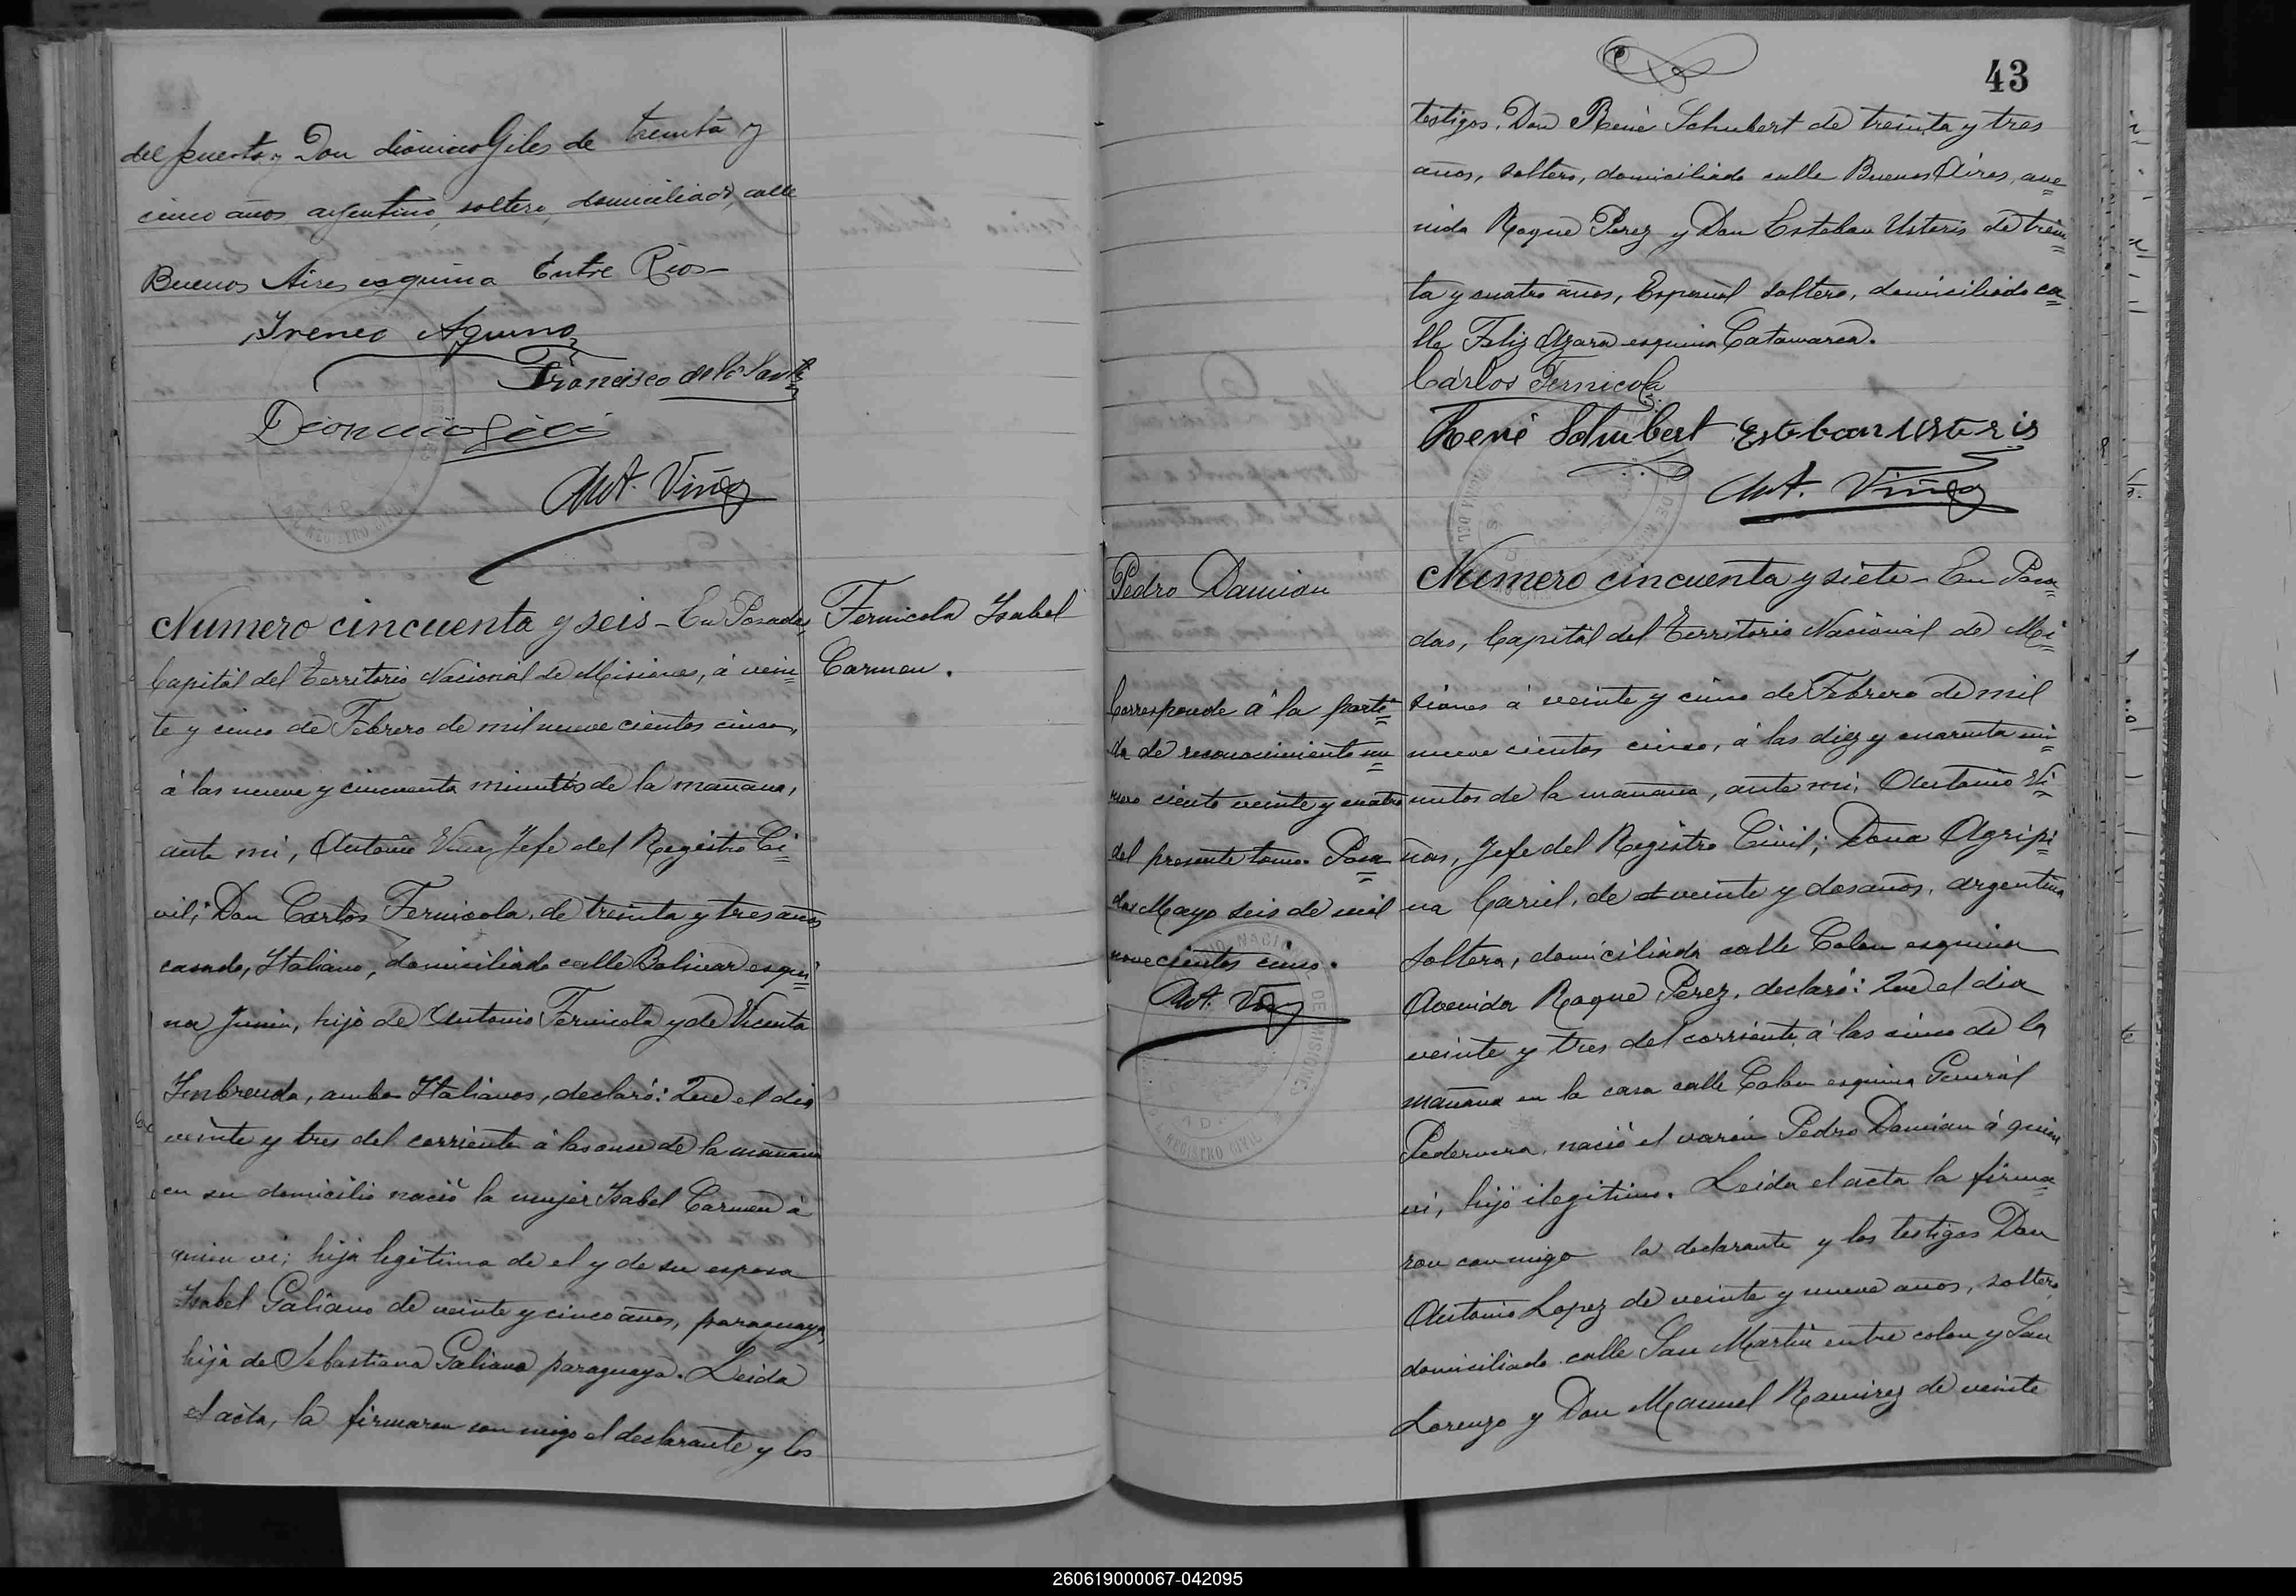 del puerto y Don dionicio Giles de treinta y
cinco años argentino, soltero, domiciliado, calle
Buenos Aires esquina Entre Rios-
Ireneo Aquino
Francisco de los Santos
Dionicio Giles
Ant. Viñas
Numero cincuenta y seis - En Posadas,
Capital del Territorio Nacional de Misiones, á vein=
te y cinco de Febrero de mil nueve cientos cinco,
á las nueve y cincuenta minutos de la mañana,
ante mi, Antonio Viñas Jefe del Registro Ci=
vil; Don Carlos Fernicola, de treinta y tres años
casado, Italiano, domiciliado calle Bolivar esqui=
na Junin, hijo de Antonio Fernicola y de Vicenta
Imbrenda, ambos Italianos, declaró: Que el dia
veinte y tres del corriente á las once de la mañana
en su domicilio nació la mujer Isabel Carmen á
quien vi; hija legitima de el y de su esposa
Isabel Galiano de veinte y cinco años, paraguaya,
hija de Sebastiana Galiano paraguaya. Leida
el acta, la firmaron con migo el declarante y los
Fernicola Isabel
Carmen.
43
testigos. Don René Schubert de treinta y tres
años, soltero, domiciliado calle Buenos Aires, ave=
nida Roque Perez y Don Esteban Usteris de trein=
ta y cuatro años, Español soltero, domiciliado ca=
lle Feliz Azara esquina Catamarca.
Cárlos Fernicola
René Schubert Esteban Usteris
Ant. Viñas
Pedro Damian
Corresponde á la parti=
da de reconocimiento nu=
mero ciento veinte y cuatro
del presente tomo. Posa=
das Mayo seis de mil
novecientos cinco.
Ant. Viñas
Numero cincuenta y siete - En Posa=
das, Capital del Territorio Nacional de Mi=
siones á veinte y cinco de Febrero de mil
nueve cientos cinco, á las diez y cuarenta mi=
nutos de la mañana, ante mi, Antonio Vi=
ñas, Jefe del Registro Civil; Doña Agripi=
na Cariel, de veinte y dos años, argentina
soltera, domiciliada calle Colon esquina
Avenida Roque Perez, declaró: Que el dia
veinte y tres del corriente á las cinco de la
mañana en la casa calle Colon esquina General
Pedernera, nació el varon Pedro Damian á quien
vi, hijo ilegitimo. Leida el acta la firma=
ron con migo la declarante y los testigos Don
Antonio Lopez de veinte y nueve años, soltero,
domiciliado calle San Martin entre colon y San
Lorenzo y Don Manuel Ramirez de veinte
260619000067-042095